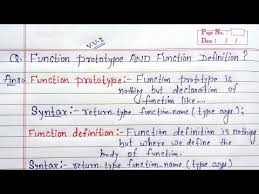 V.V.I
Page No.
Date
Q. Function prototype AND Function Definition ?
Ans:- Function prototype:- Function prototype is
nothing but declaration of
function like...
Syntax:- return-type function-name (type args);
Function definition:- Function definition is nothing
but where we define the
body of function.
Syntax:- return-type function-name (type args)